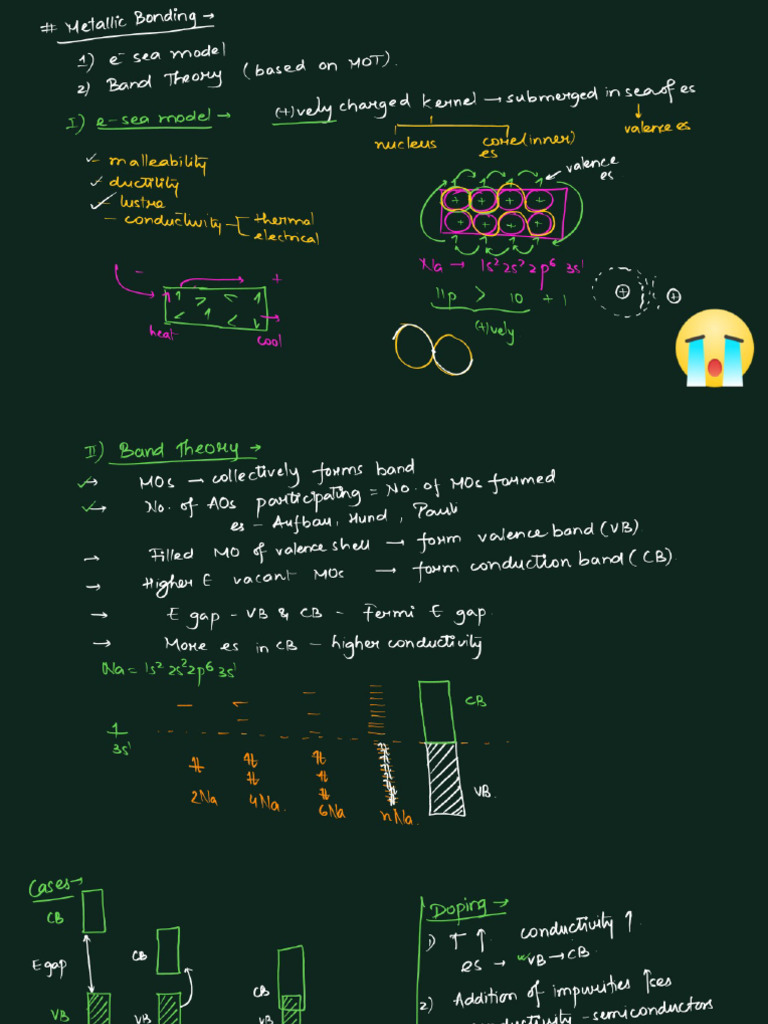 # Metallic Bonding →
1) e⁻ sea model
2) Band Theory (based on MOT).
I) e-sea model → (+)vely charged kernel → submerged in sea of es
nucleus core(inner) es
valence es
- malleability
- ductility
- lustre
- conductivity
thermal
electrical
valence es.
+ + + +
+ + + +
Na → 1s² 2s² 2p⁶ 3s¹
11p > 10 + 1
(+)vely
+ +
- +
heat
cool
II) Band Theory →
→ MOs → collectively forms band
→ No. of AOs participating = No. of MOs formed
es - Aufbau, Hund, Pauli
→ Filled MO of valence shell → form valence band (VB)
→ Higher E vacant MOs → form conduction band (CB).
→ E gap - VB & CB - Fermi E gap.
→ More es in CB - higher conductivity
Na = 1s² 2s² 2p⁶ 3s¹
CB
3s¹
VB.
2Na 4Na. 6Na nNa.
Cases →
CB
E gap
VB
CB
VB
CB
VB
Doping →
1) T ↑ conductivity ↑.
es → VB → CB.
2) Addition of impurities ↑ces
conductivity - semiconductors